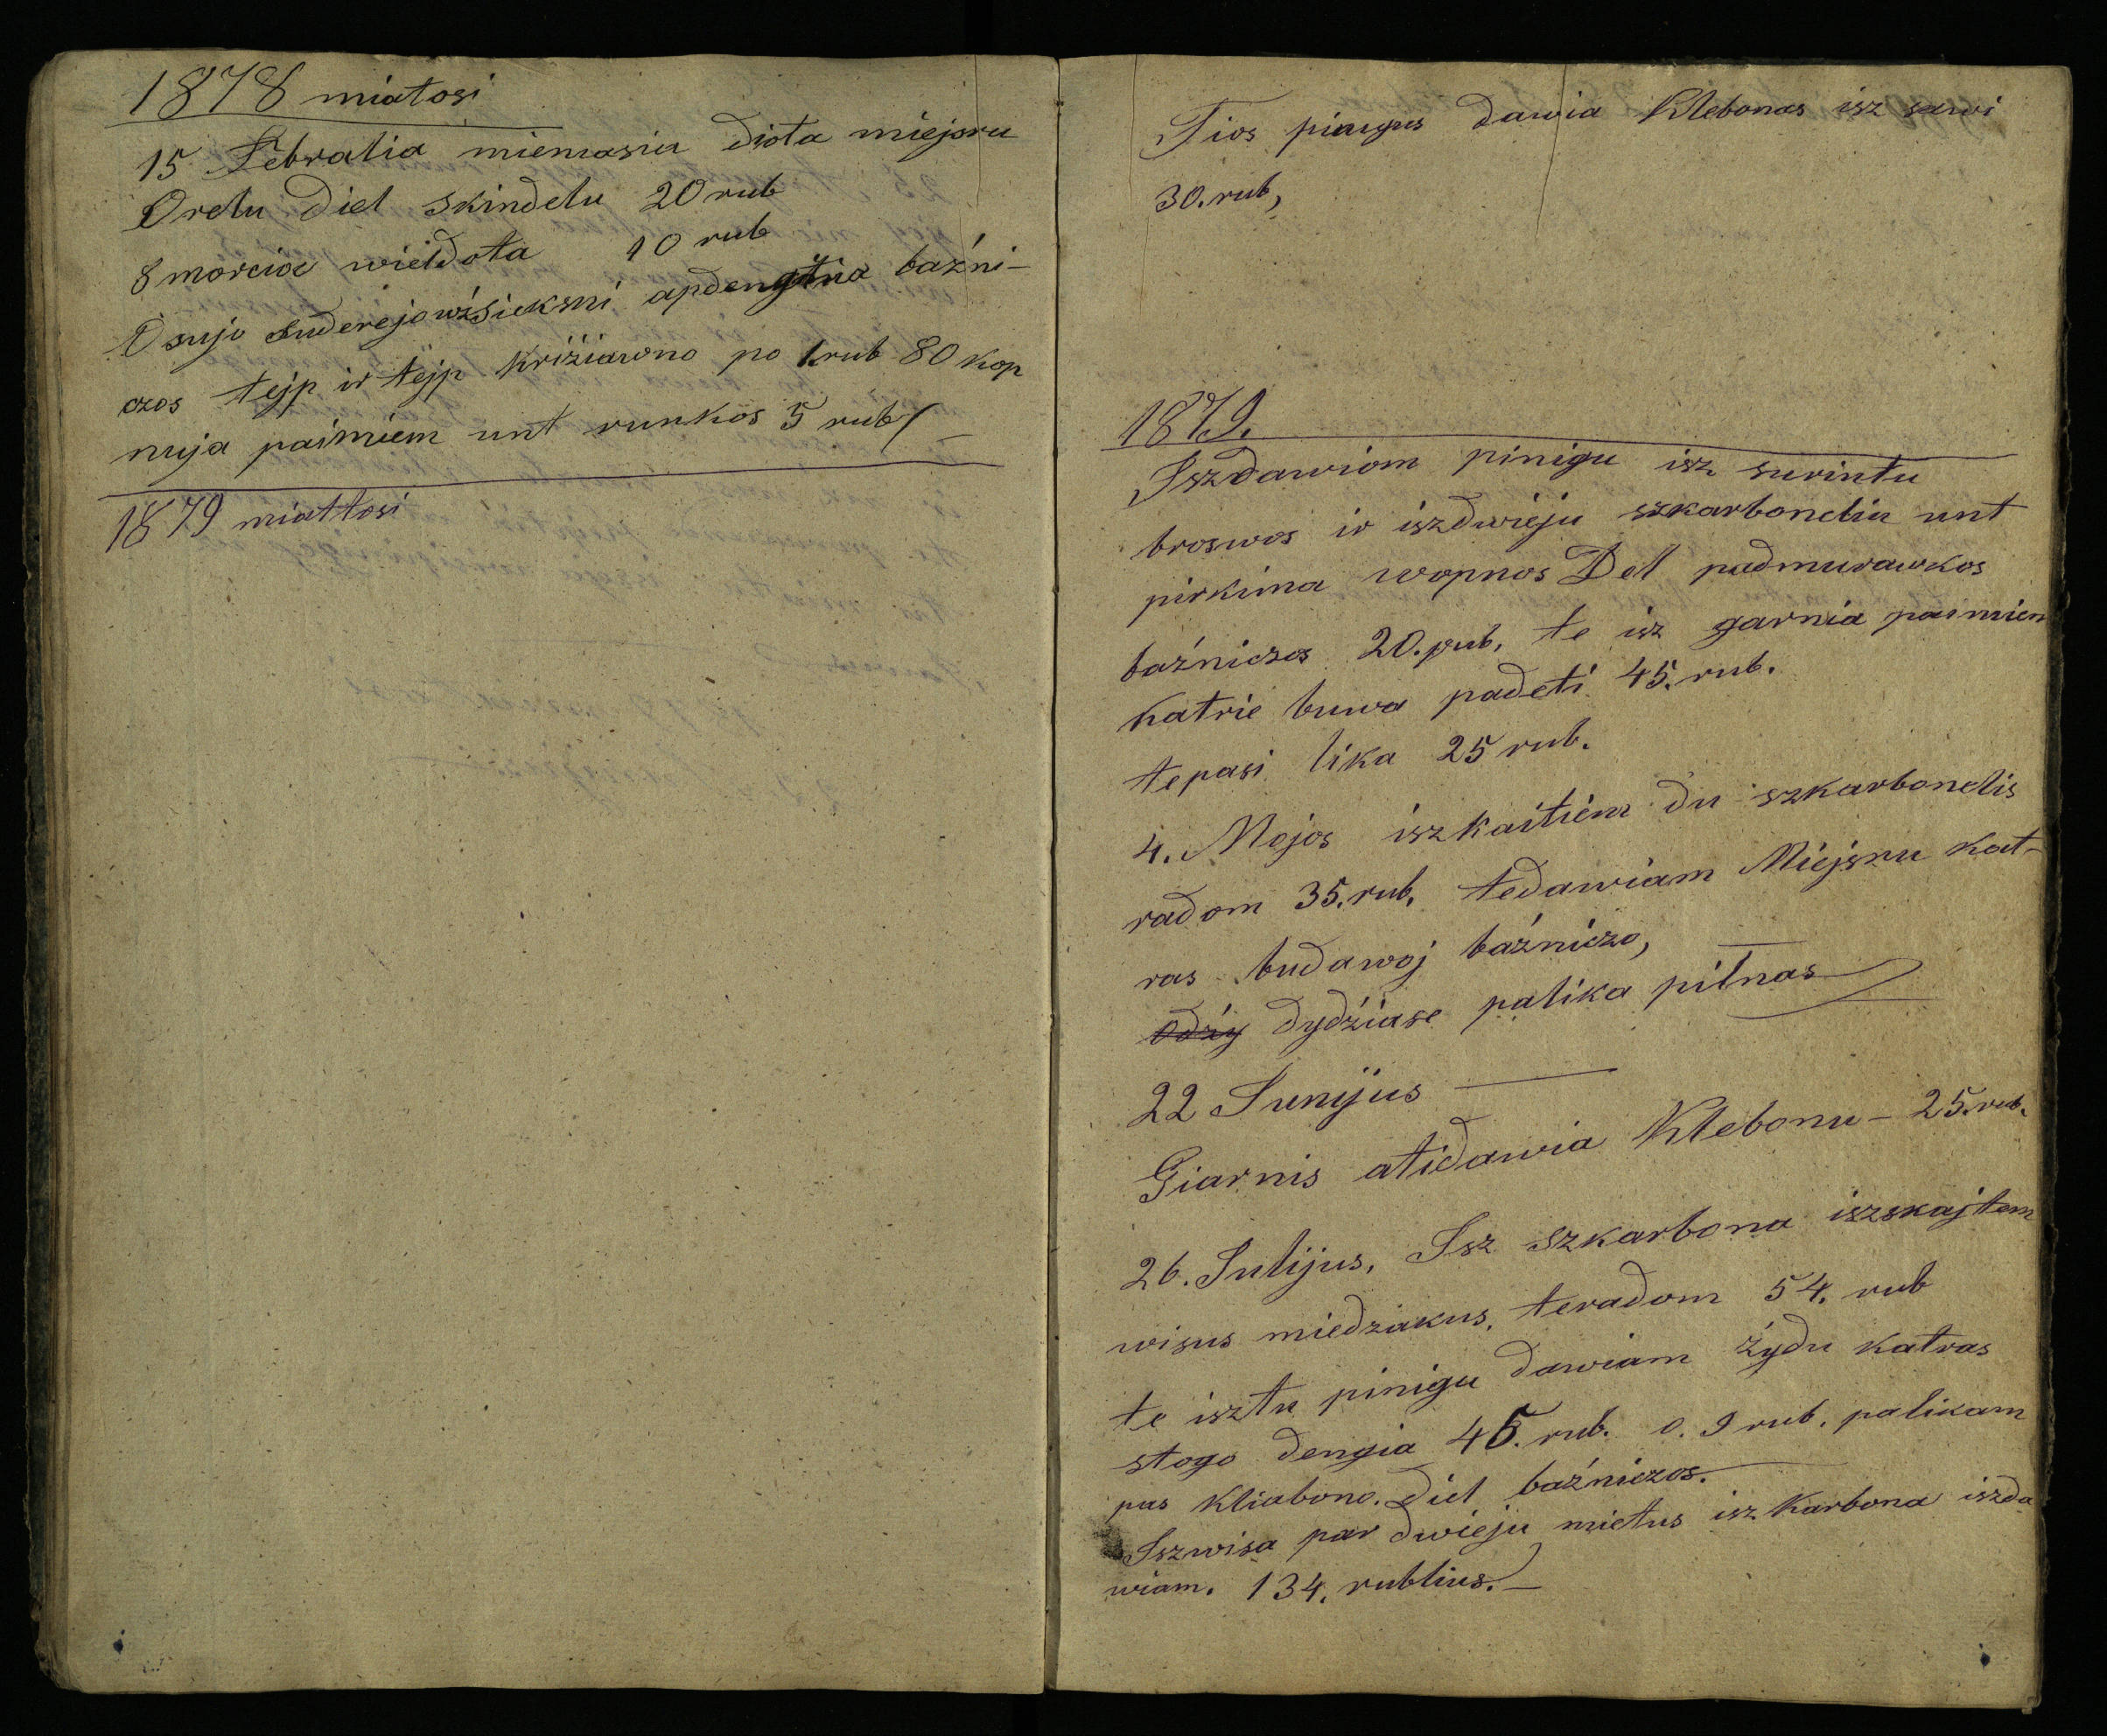 1878 miatosi
15 Febralia mienasiu diota miejsru
Orelu diel skindelu 20 rub
8 morcia wieldota 10 rub
O sujo suderejo wźsieksni apdengtna baźni-
czos tejp ir tejp kriźiawno po 1 rub 80 kop
nuja paimiem unt runkos 5 rub
1879 miattosi
Tios pinigus dawia Klebonas isz sawi
30. rub,
1879.
Iszdawiom pinigu isz surintu
broswos ir iszdwieju szkarboneliu unt
pirkima wopnos Del padmurawkos
baźniczos 20. rub, te isz garnia paimiem
katrie buwa padeti 45. rub.
tepasi lika 25 rub.
4. Mojos iszkaitiem du szkarbonelis
radom 35. rub, tedawiam Miejsnu kat-
ras budawoj baźniczo,
odźy dydźiase palika pilnas
22 Junijus
Giarnis atidawia Klebonu - 25. rub.
26. Julijus, Isz szkarbona iszskajtem
wisus miedzakus, teradom 54. rub
te isztu pinigu dawiam źydu katras
stogo dengia 45. rub. o. 9 rub. palikam
pas Kliabono. diel baźniczos.
Iszwisa par dwieju mietus isz Karbona iszda
wiam. 134. rublius. -